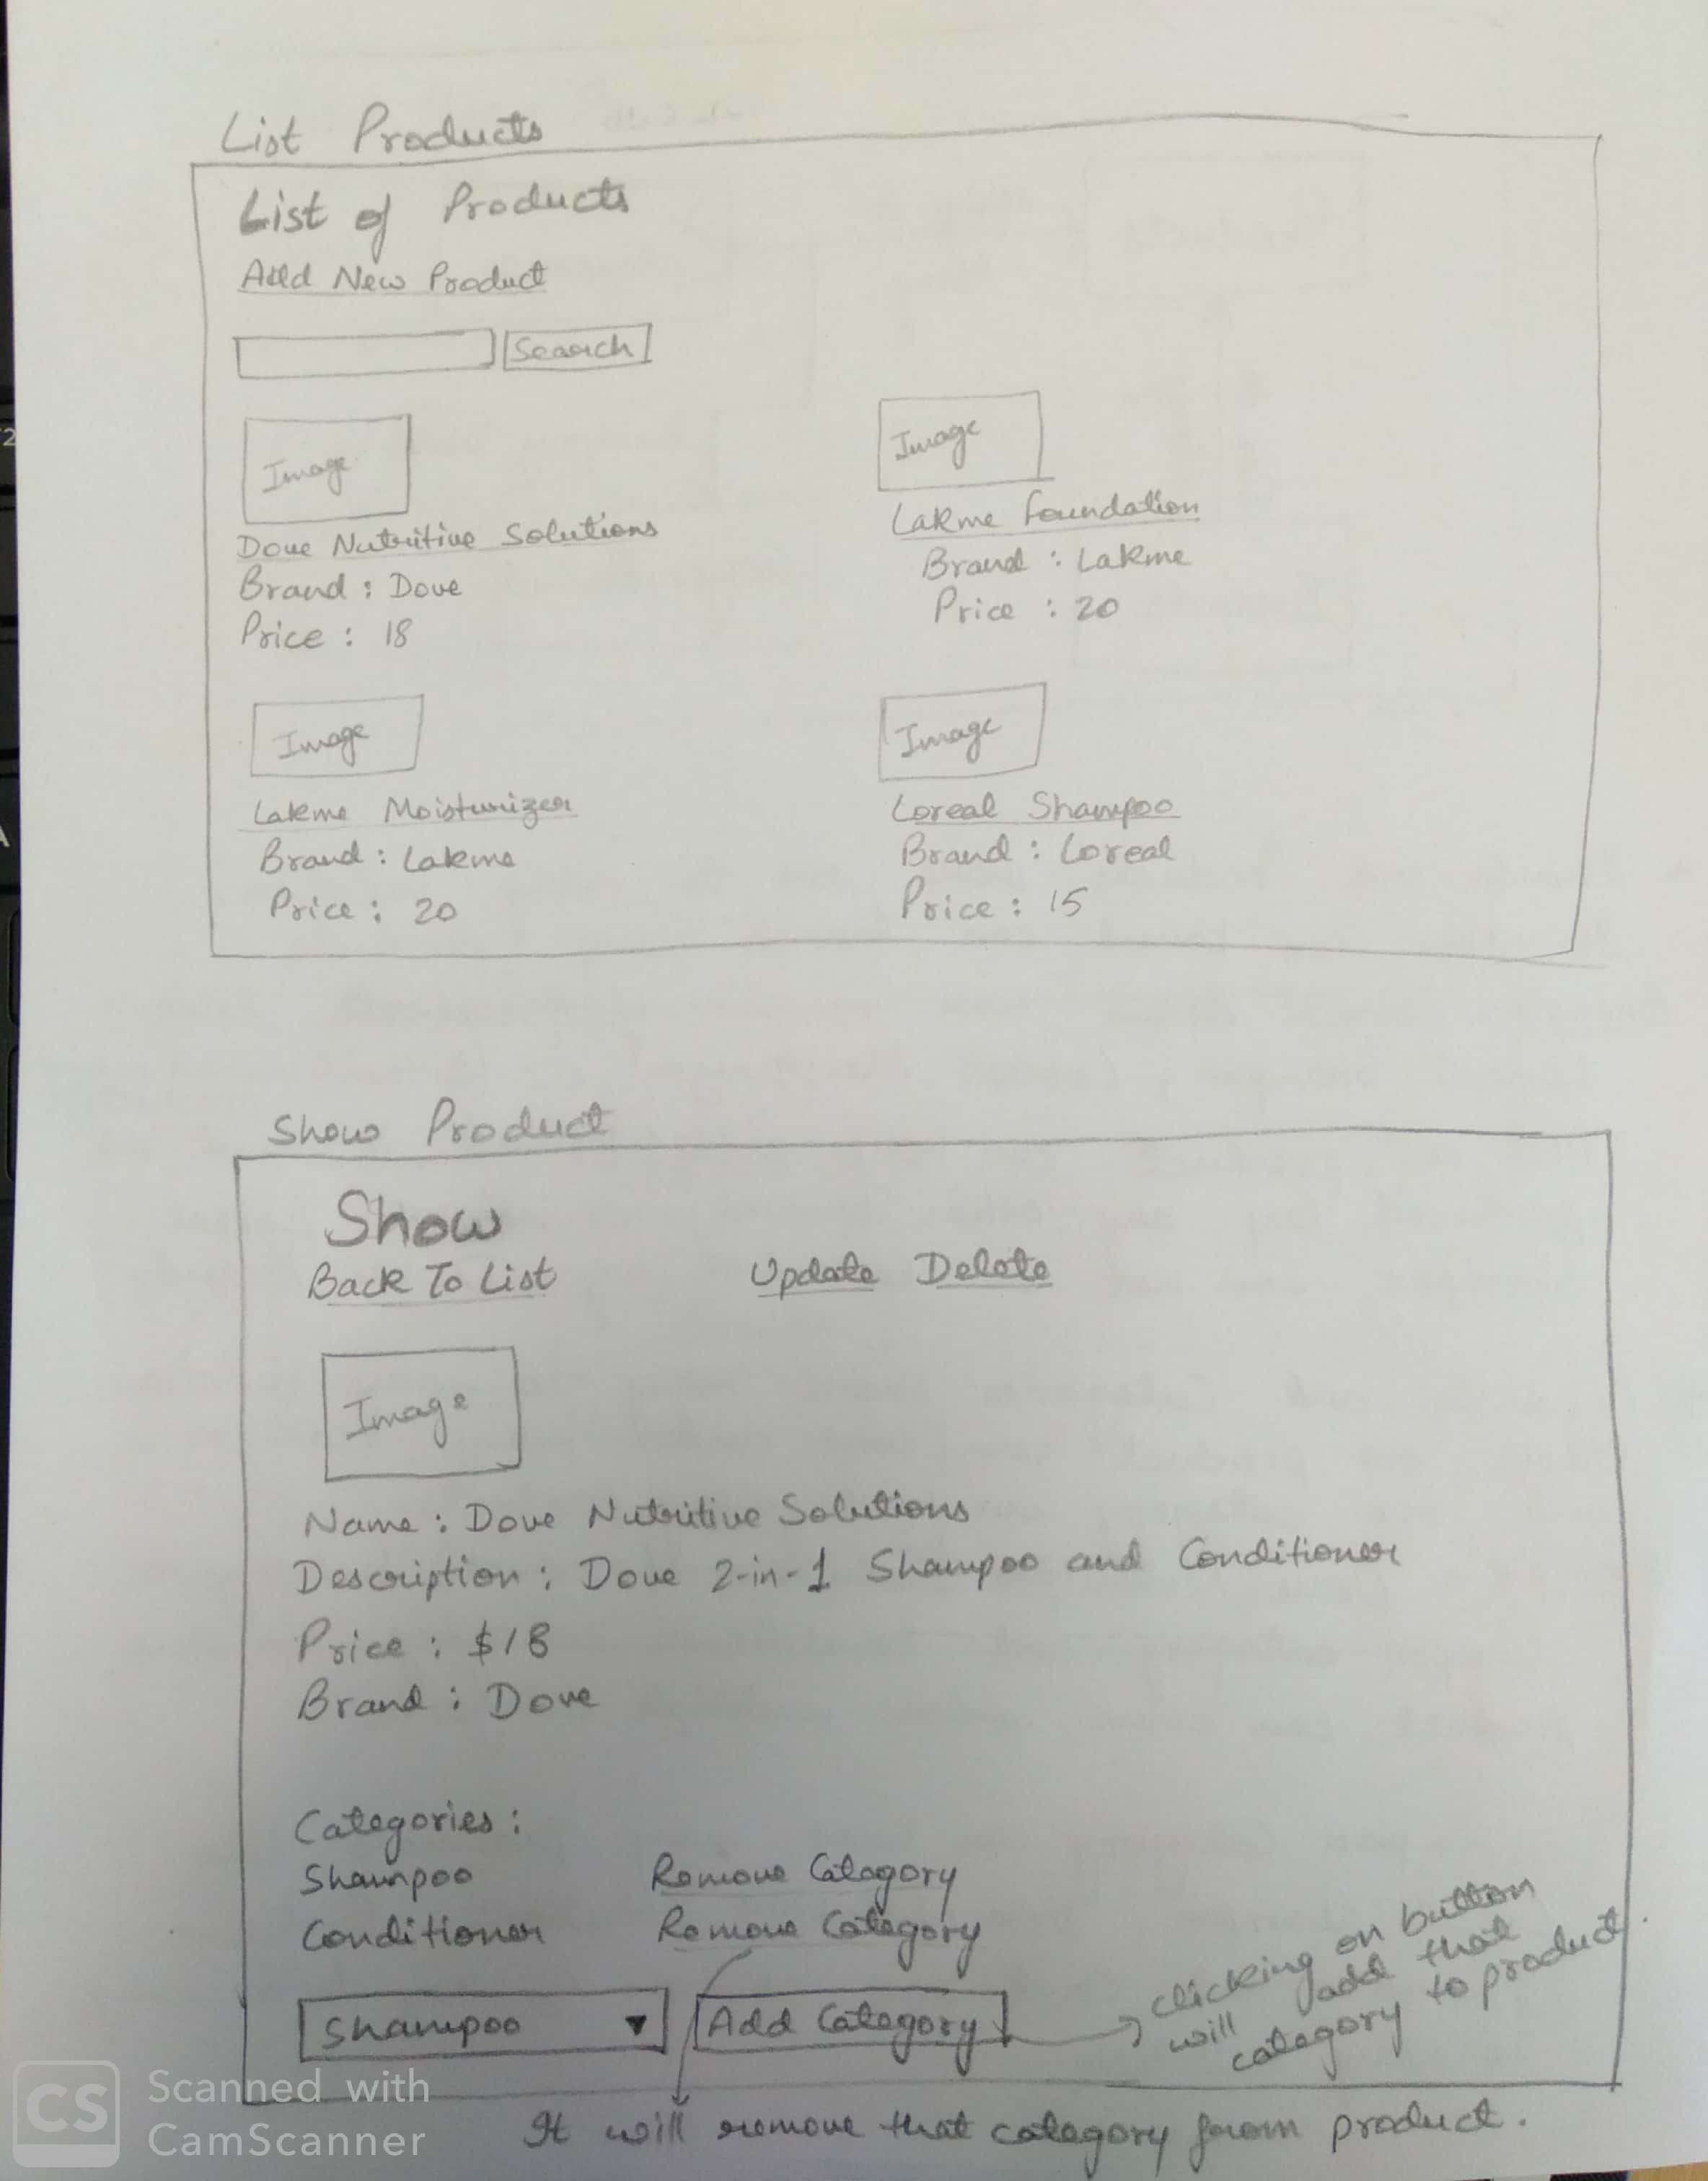 List Products
List of Products
Add New Product
Search
Image
Dove Nutritive Solutions
Brand : Dove
Price : 18
Image
Lakme Foundation
Brand : Lakme
Price : 20
Image
Lakme Moisturizer
Brand : Lakme
Price : 20
Image
Loreal Shampoo
Brand : Loreal
Price : 15
Show Product
Show
Back To List Update Delete
Image
Name : Dove Nutritive Solutions
Description : Dove 2-in-1 Shampoo and Conditioner
Price : $18
Brand : Dove
Categories :
Shampoo Remove Category
Conditioner Remove Category
Shampoo ▼ Add Category
clicking on button
will add that
category to product.
It will remove that category from product.
CS Scanned with
CamScanner